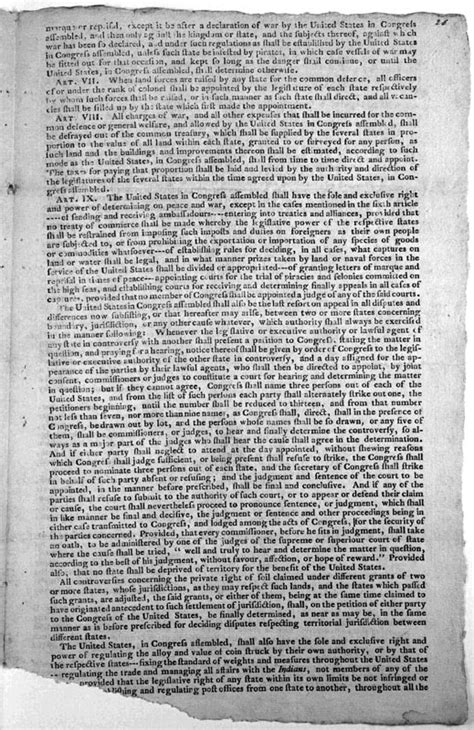 marque or reprisal, except it be after a declaration of war by the United States in Congress
assembled, and then only against the kingdom or state, and the subjects thereof, against which
war has been so declared, and under such regulations as shall be established by the United States
in Congress assembled, unless such state be infested by pirates, in which case vessels of war may
be fitted out for that occasion, and kept so long as the danger shall continue, or until the
United States, in Congress assembled, shall determine otherwise.
ART. VII. When land forces are raised by any state for the common defence, all officers
of or under the rank of colonel shall be appointed by the legislature of each state respectively
by whom such forces shall be raised, or in such manner as such state shall direct, and all vacan-
cies shall be filled up by the state which first made the appointment.
ART. VIII. All charges of war, and all other expences that shall be incurred for the com-
mon defence or general welfare, and allowed by the United States in Congress assembled, shall
be defrayed out of the common treasury, which shall be supplied by the several states in pro-
portion to the value of all land within each state, granted to or surveyed for any person, as
such land and the buildings and improvements thereon shall be estimated, according to such
mode as the United States, in Congress assembled, shall from time to time direct and appoint.
The taxes for paying that proportion shall be laid and levied by the authority and direction of
the legislatures of the several states within the time agreed upon by the United States, in Con-
gress assembled.
ART. IX. The United States in Congress assembled shall have the sole and exclusive right
and power of determining on peace and war, except in the cases mentioned in the sixth article
----of sending and receiving ambassadours---entering into treaties and alliances, provided that
no treaty of commerce shall be made whereby the legislative power of the respective states
shall be restrained from imposing such imposts and duties on foreigners as their own people
are subjected to, or from prohibiting the exportation or importation of any species of goods
or commodities whatsoever---of establishing rules for deciding, in all cases, what captures on
land or water shall be legal, and in what manner prizes taken by land or naval forces in the
service of the United States shall be divided or appropriated---of granting letters of marque and
reprisal in times of peace---appointing courts for the trial of piracies and felonies committed on
the high seas, and establishing courts for receiving and determining finally appeals in all cases of
captures, provided that no member of Congress shall be appointed a judge of any of the said courts.
The United States in Congress assembled shall also be the last resort on appeal in all disputes and
differences now subsisting, or that hereafter may arise, between two or more states concerning
boundary, jurisdiction, or any other cause whatever, which authority shall always be exercised
in the manner following: Whenever the legislative or executive authority or lawful agent of
any state in controversy with another shall present a petition to Congress, stating the matter in
question, and praying for a hearing, notice thereof shall be given by order of Congress to the legis-
lative or executive authority of the other state in controversy, and a day assigned for the ap-
pearance of the parties by their lawful agents, who shall then be directed to appoint, by joint
consent, commissioners or judges to constitute a court for hearing and determining the matter
in question; but if they cannot agree, Congress shall name three persons out of each of the
United States, and from the list of such persons each party shall alternately strike out one, the
petitioners beginning, until the number shall be reduced to thirteen, and from that number
not less than seven, nor more than nine names, as Congress shall, direct, shall in the presence of
Congress, be drawn out by lot, and the persons whose names shall be so drawn, or any five of
them, shall be commissioners, or judges, to hear and finally determine the controversy, so al-
ways as a major part of the judges who shall hear the cause shall agree in the determination.
And if either party shall neglect to attend at the day appointed, without shewing reasons
which Congress shall judge sufficient, or being present shall refuse to strike, the Congress shall
proceed to nominate three persons out of each state, and the secretary of Congress shall strike
in behalf of such party absent or refusing; and the judgment and sentence of the court to be
appointed, in the manner before prescribed, shall be final and conclusive. And if any of the
parties shall refuse to submit to the authority of such court, or to appear or defend their claim
or cause, the court shall nevertheless proceed to pronounce sentence, or judgment, which shall
in like manner be final and decisive, the judgment or sentence and other proceedings being in
either case transmitted to Congress, and lodged among the acts of Congress, for the security of
the parties concerned. Provided, that every commissioner, before he sits in judgment, shall take
an oath, to be administered by one of the judges of the supreme or superiour court of state
where the cause shall be tried, "well and truly to hear and determine the matter in question,
according to the best of his judgment, without favour, affection, or hope of reward." Provided
also, that no state shall be deprived of territory for the benefit of the United States.
All controversies concerning the private right of soil claimed under different grants of two
or more states, whose jurisdictions, as they may respect such lands, and the states which passed
such grants, are adjusted, the said grants, or either of them, being at the same time claimed to
have originated antecedent to such settlement of jurisdiction, shall, on the petition of either party
to the Congress of the United States, be finally determined, as near as may be, in the same
manner as is before prescribed for deciding disputes respecting territorial jurisdiction between
different states.
The United States, in Congress assembled, shall also have the sole and exclusive right and
power of regulating the alloy and value of coin struck by their own authority, or by that of
the respective states---fixing the standard of weights and measures throughout the United States
--regulating the trade and managing all affairs with the Indians, not members of any of the
provided that the legislative right of any state within its own limits be not infringed or
establishing and regulating post offices from one state to another, throughout all the